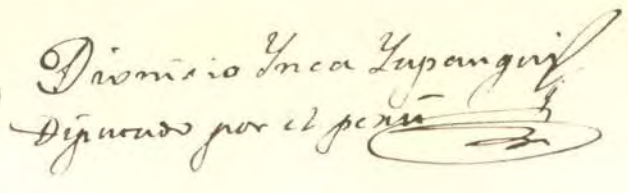 Dionisio Ynca Yupangui
Diputado por el perú